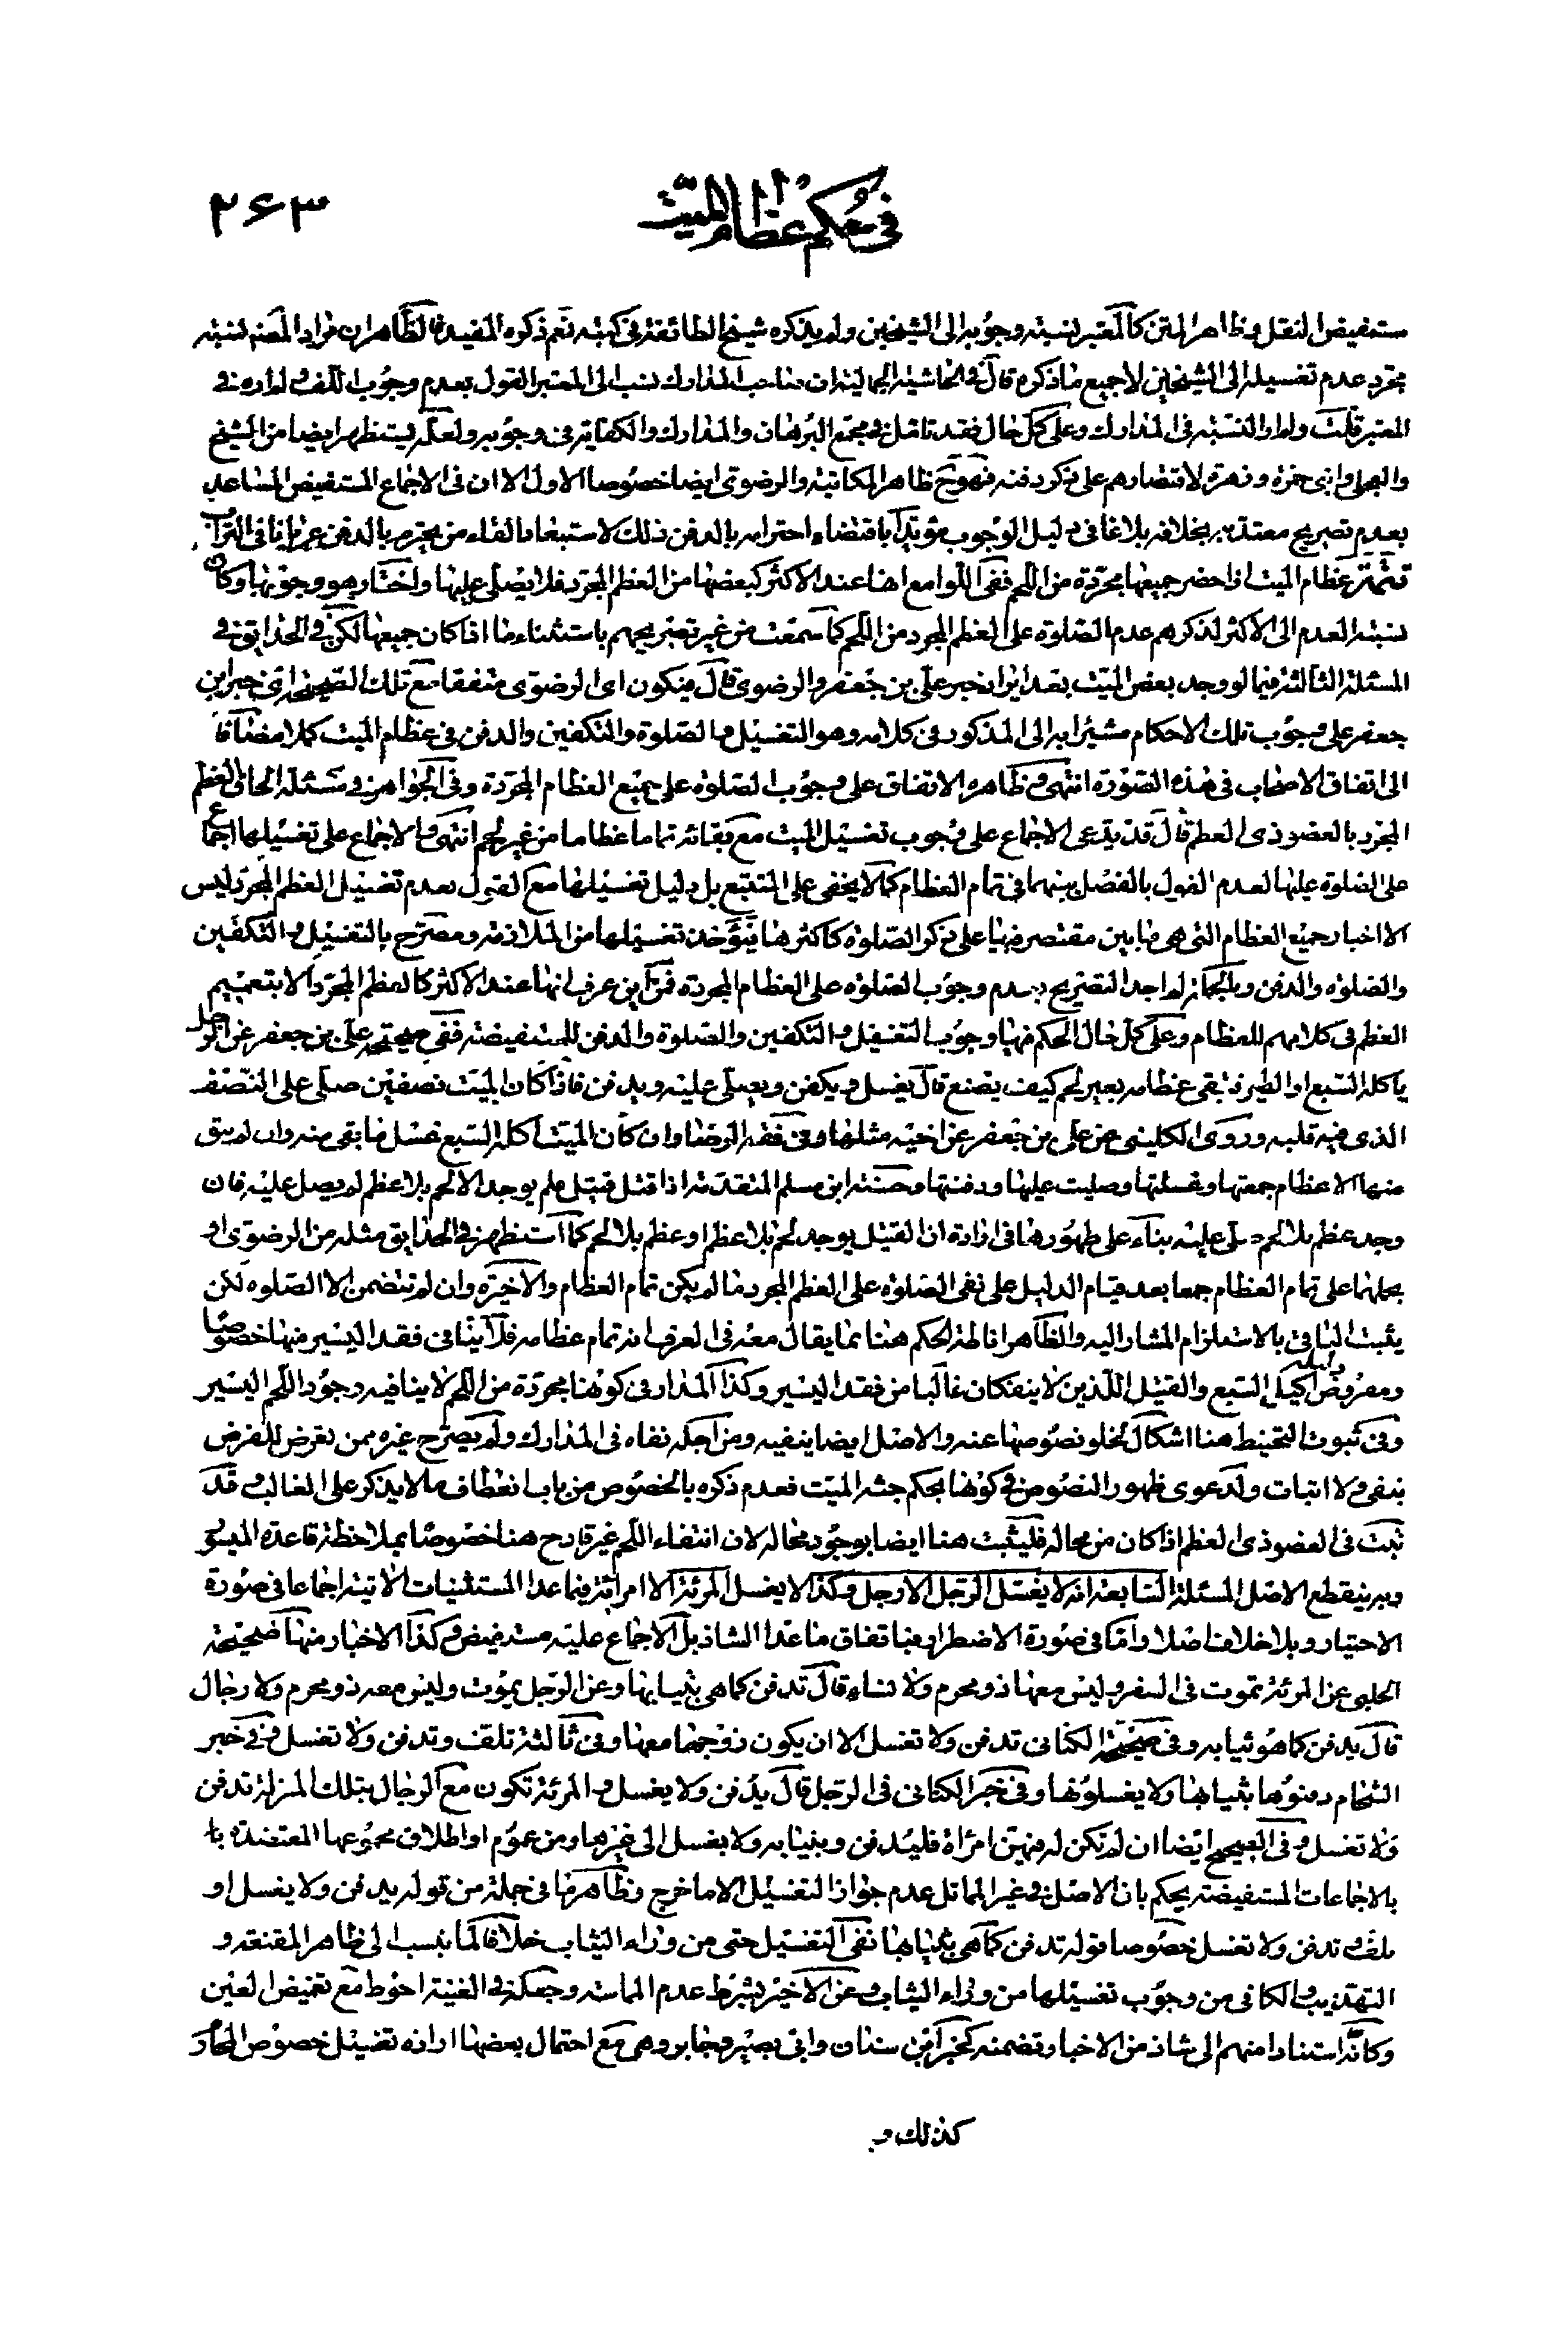 في حكم عظام الميت
۲۶۳
مستفيض النقل وظاهر المتن كالمعتبر نسبته وجوبه الى الشيخين ولم يذكره شيخ الطائفة في كتبه نعم ذكره المفيد فالظاهر ان مراد المصنه نسبته
مجرد عدم تغسيله الى الشيخين لا جميع ما ذكره قال في الحاشية الجمالية ان صاحب المدارك نسب الى المعتبر القول بعدم وجوب اللف ولم اره في
المعتبر قلت ولم ار النسبة في المدارك وعلى كل حال فقد تامل في مجمع البرهان والمدارك والكفاية في وجوبه ولعله يستظهر ايضا من الشيخ
والحلي وابني حمزة وزهرة لاقتصارهم على ذكر دفنه فهو ح ظاهر المكاتبة والرضوي ايضا خصوصا الاول الا ان في الاجماع المستفيض المساعد
بعدم تصريح معتد به بخلافه بلاغا في دليل الوجوب مؤيدا باقتضاء احترامه بالدفن ذلك لاستبعاد القاء من يحترم بالدفن عريانا في التراب
تتمة عظام الميت اذا حضر جميعها مجردة من اللحم ففي اللوامع انها عند الاكثر كبعضها من العظم المجرد فلا يصلى عليها واختار هو وجوبها وكان
نسبة العدم الى الاكثر لذكرهم عدم الصلوة على العظم المجرد من اللحم كما سمعت من غير تصريحهم باستثناء ما اذا كان جميعها لكن في الحدائق في
المسئلة الثالثة فيما لو وجد بعض الميت بعد ايراد خبر علي بن جعفر والرضوي قال فيكون اى الرضوي متفقا مع تلك الصحيحة اي خبر ابن
جعفر على وجوب تلك الاحكام مشيرا به الى المذكور في كلامه وهو التغسيل والصلوة والتكفين والدفن في عظام الميت كملا مضافا
الى اتفاق الاصحاب في هذه الصورة انتهى وظاهره الاتفاق على وجوب الصلوة على جميع العظام المجردة وفي الجواهر في مسئلة الحاق العظم
المجرد بالعضو ذي العظم قال قد يدعى الاجماع على وجوب تغسيل الميت مع بقائه تماما عظاما من غير لحم انتهى والاجماع على تغسيلها اجماع
على الصلوة عليها لعدم القول بالفصل بينهما في تمام العظام كما لا يخفى على المتتبع بل دليل تغسيلها مع القول بعدم تغسيل العظم المجرد ليس
الا اخبار جميع العظام التي هي ما بين مقتصر فيها على ذكر الصلوة كاكثرها فيؤخذ تغسيلها من الملازمة ومصرح بالتغسيل والتكفين
والصلوة والدفن وبالجملة لم اجد التصريح بعدم وجوب الصلوة على العظام المجردة فمن اين عرف انها عند الاكثر كالعظم المجرد الا بتعميم
العظم في كلامهم للعظام وعلى كل حال الحكم فيها وجوب التغسيل والتكفين والصلوة والدفن للمستفيضة ففي صحيحة علي بن جعفر عن الرجل
ياكله السبع او الطير فتبقى عظامه بغير لحم كيف يصنع قال يغسل ويكفن ويصلى عليه ويدفن فاذا كان الميت نصفين صلى على النصف
الذي فيه قلبه وروى الكليني عن علي بن جعفر عن اخيه مثلها وفي فقه الرضا وان كان الميت اكله السبع غسل ما بقى منه وان لم يبق
منها الا عظام جمعتها وغسلتها وصليت عليها ودفنتها وحسنة ابن مسلم المتقدمة اذا قتل قتيل فلم يوجد الا لحم بلا عظم لم يصل عليه فان
وجد عظم بلا لحم صلى عليه بناء على ظهورها في ارادة ان القتيل يوجد لحم بلا عظم او عظم بلا لحم كما استظهر في الحدايق مثله من الرضوي او
بحملهما على تمام العظام جمعا بعد قيام الدليل على نفى الصلوة على العظم المجرد ما لم يكن تمام العظام والاخيرة وان لم تتضمن الا الصلوة لكن
يثبت الباقي بالاستلزام المشار اليه والظاهر اناطة الحكم هنا بما يقال معه في العرف انه تمام عظامه فلا ينافى فقد اليسير منها خصوصا
ومفروض اكيل السبع والقتيل اللذين لا ينفكان غالبا من فقد اليسير وكذا المدار في كونها مجردة من اللحم لا ينافيه وجود اللحم اليسير
وفي ثبوت التحنيط هنا اشكال لخلو نصوصها عنه والاصل ايضا ينفيه ومن اجله نفاه في المدارك ولم يصرح غيره ممن تعرض للفرض
بنفي ولا اثبات ولدعوى ظهور النصوص في كونها بحكم جثة الميت فعدم ذكره بالخصوص من باب انعطاف ما لا يذكر على الغالب وقد
ثبت في العضو ذي العظم اذا كان من محاله فليثبت هنا ايضا بوجود محاله لان انتفاء اللحم غير قادح هنا خصوصا بملاحظة قاعدة الميسور
وبه ينقطع الاصل المسئلة السابعة انه لا يغسل الرجل الا رجل وكذا لا يغسل المرئة الا امرأة فيما عدا المستثنيات الاتية اجماعا في صورة
الاختيار وبلا خلاف اصلا واما في صورة الاضطرار فباتفاق ما عدا الشاذ بل الاجماع عليه مستفيض وكذا الاخبار منها صحيحة
الحلبي عن المرئة تموت في السفر وليس معها ذو محرم ولا نساء قال تدفن كما هي بثيابها وعن الرجل يموت وليس معه ذو محرم ولا رجال
قال يدفن كما هو بثيابه وفي صحيحة الكناني تدفن ولا تغسل الا ان يكون زوجها معها وفي ثالثة تلف وتدفن ولا تغسل وفي خبر
الشحام دفنوها بثيابها ولا يغسلونها وفي خبر الكناني في الرجل قال يدفن ولا يغسل والمرئة تكون مع الرجال بتلك المنزلة تدفن
ولا تغسل وفي الصحيح ايضا ان لم تكن له فيهن امرأة فليدفن في ثيابه ولا يغسل الى غيرها ومن عموم او اطلاق مجموعها المعتضدة با
بالاجماعات المستفيضة يحكم بان الاصل في غير المماثل عدم جواز التغسيل الا ما خرج وظاهر ما في جملة من قوله يدفن ولا يغسل او
يلف وتدفن ولا تغسل خصوصا قوله تدفن كما هي بثيابها نفى التغسيل حتى من وراء الثياب خلافا لما نسب الى ظاهر المقنعة و
التهذيب والكافي من وجوب تغسيلها من وراء الثياب وعن الاخير بشرط عدم المماسة وجعله في الغنية احوط مع تغميض العينين
وكانه استنادا منهم الى شاذ من الاخبار تضمنه كخبر ابن سنان وابي بصير وجابر وهي مع احتمال بعضها ارادة تغسيل خصوص المحارم
كذلك و